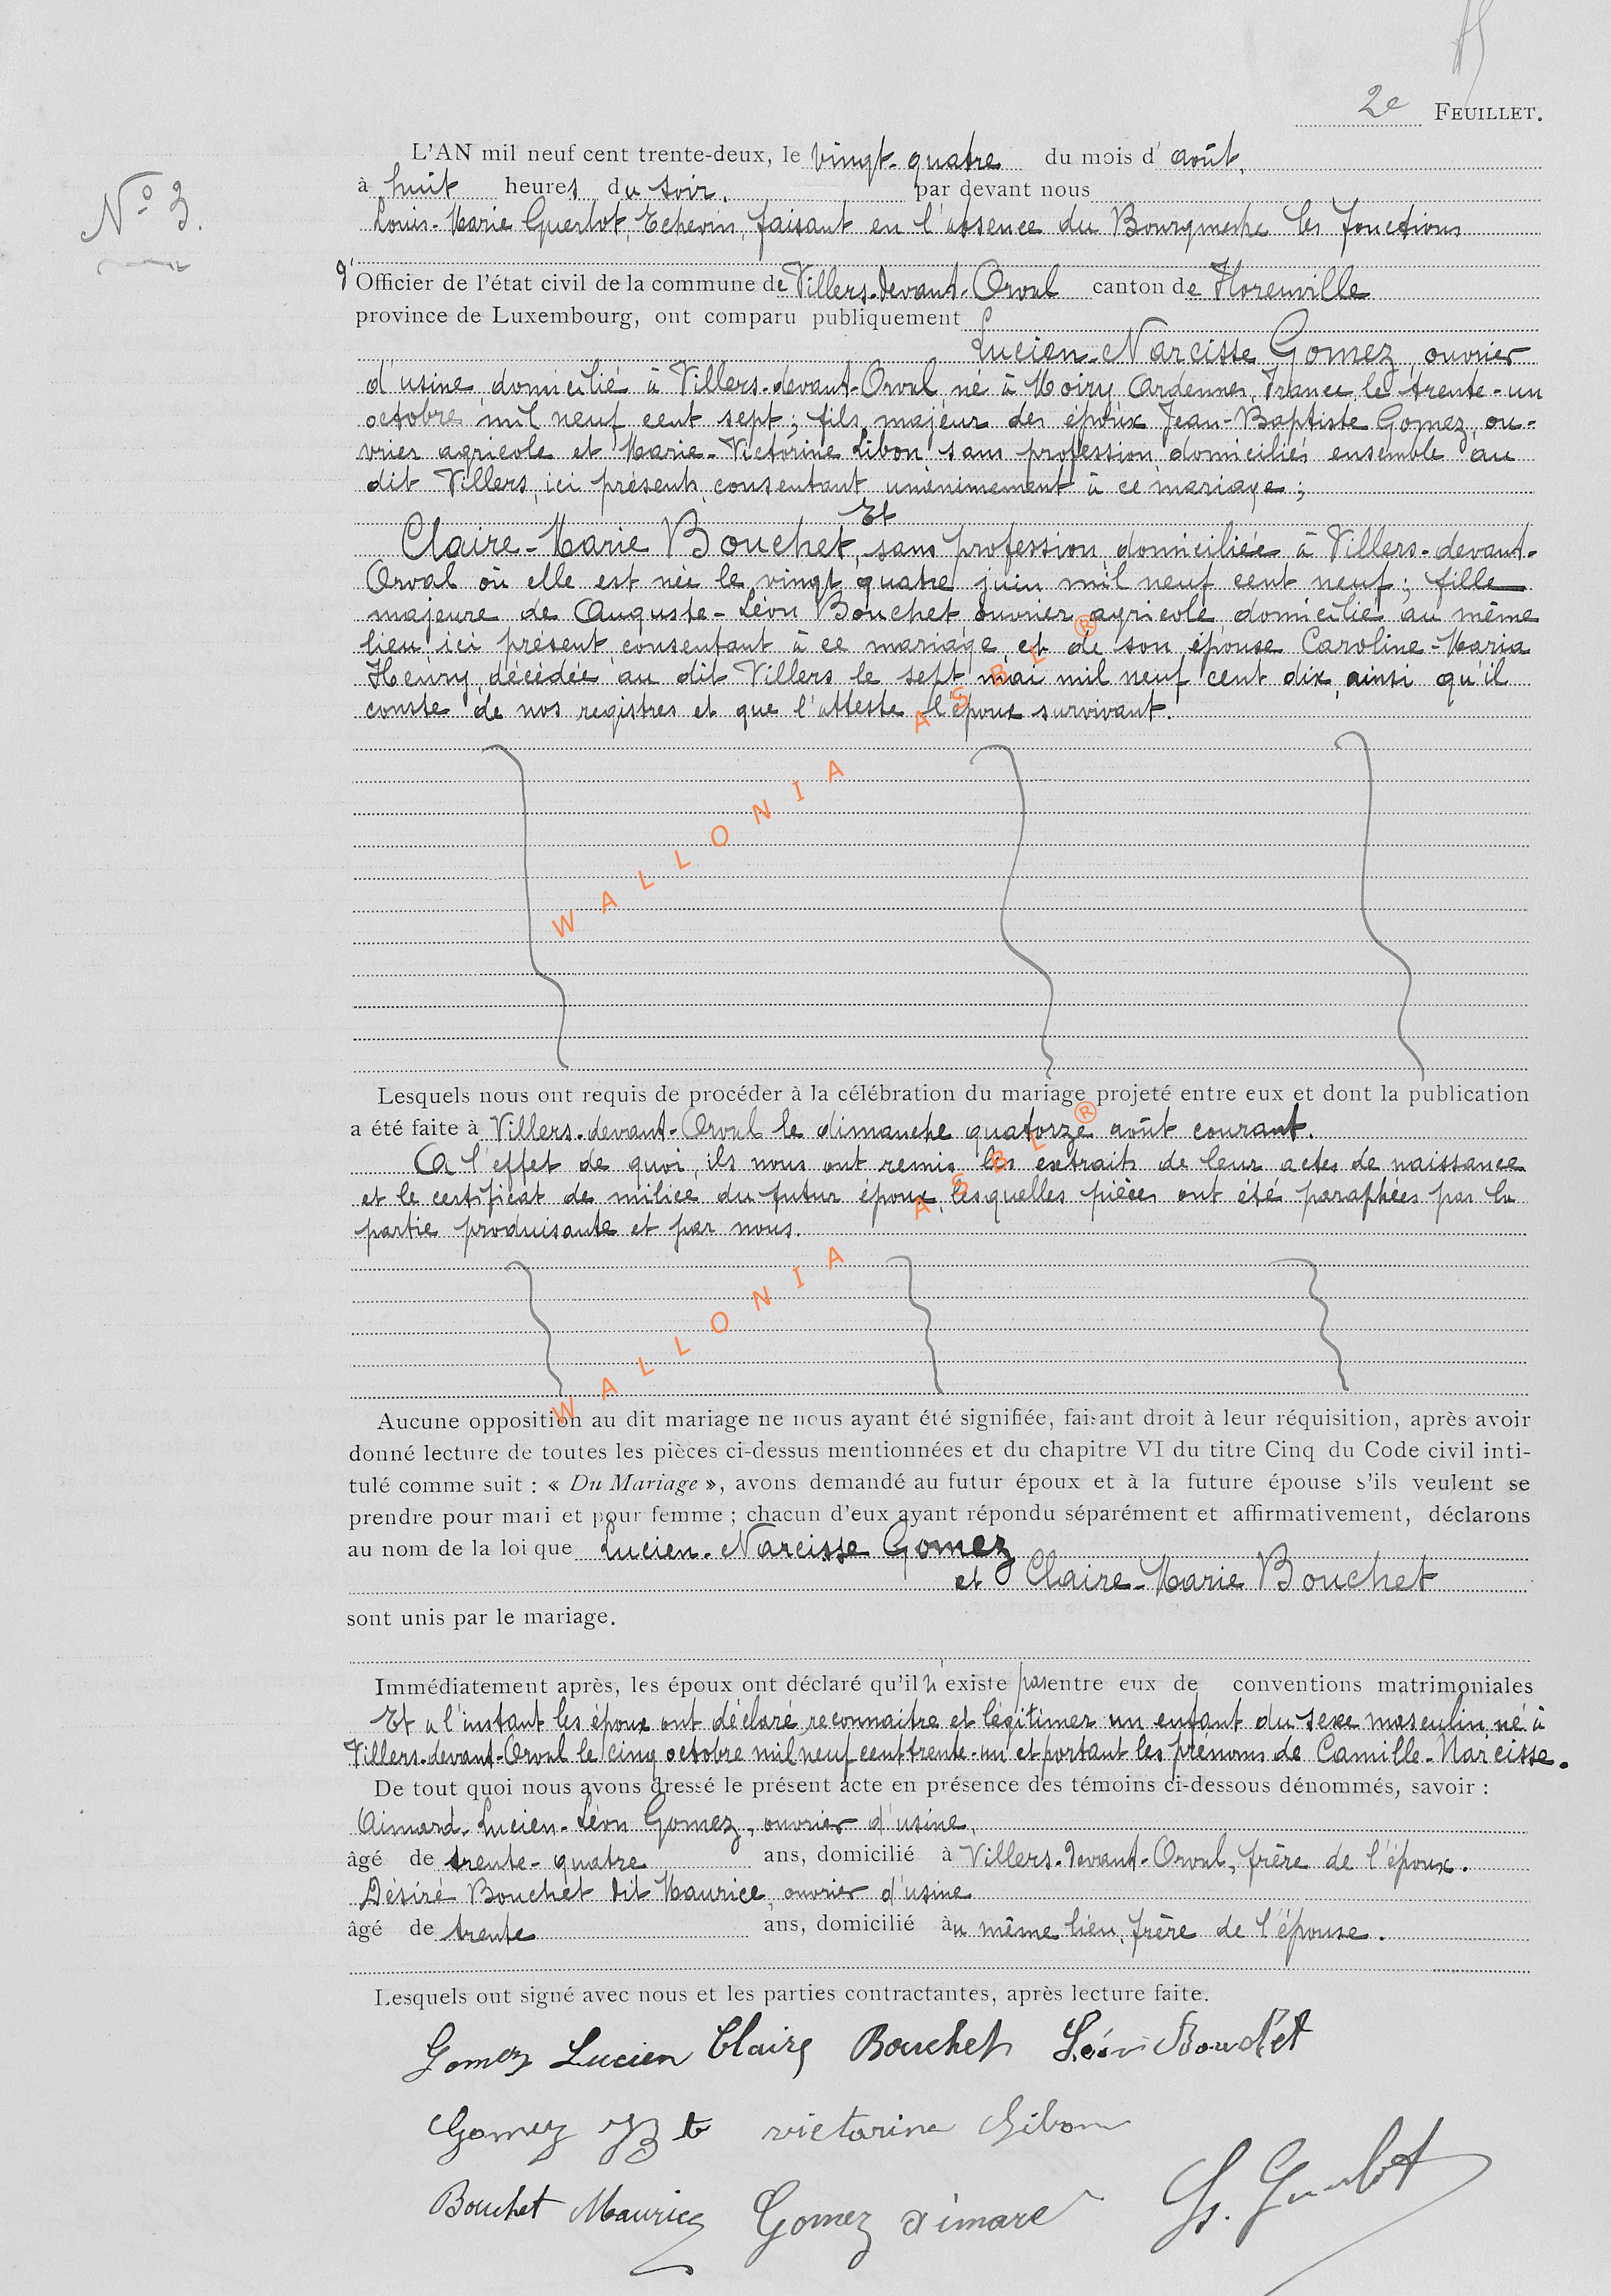 2e FEUILLET.
N° 3.
L'AN mil neuf cent trente-deux, le vingt-quatre du mois d'août,
à huit heures du soir, par devant nous
Louis-Marie Guerlot, Echevin, faisant en l'absence du Bourgmestre les fonctions
d'Officier de l'état civil de la commune de Villers-devant-Orval canton de Florenville
province de Luxembourg, ont comparu publiquement
Lucien-Narcisse Gomez, ouvrier
d'usine, domicilié à Villers-devant-Orval, né à Moiry, Ardennes, France, le trente-un
octobre mil neuf cent sept; fils majeur des époux Jean-Baptiste Gomez, ou-
vrier agricole et Marie-Victorine Libon, sans profession, domiciliés ensemble au
dit Villers, ici présents, consentant unénimement à ce mariage;
Et
Claire-Marie Bouchet, sans profession, domiciliée à Villers-devant-
Orval où elle est née le vingt quatre juin mil neuf cent neuf; fille
majeure de Auguste-Léon Bouchet, ouvrier agricole, domicilié au même
lieu, ici présent, consentant à ce mariage, et de son épouse Caroline-Maria
Henry, décédée au dit Villers le sept mai mil neuf cent dix, ainsi qu'il
conste de nos registres et que l'atteste l'époux survivant.
WALLONIA ASBL ®
Lesquels nous ont requis de procéder à la célébration du mariage projeté entre eux et dont la publication
a été faite à Villers-devant-Orval le dimanche quatorze août courant.
A l'effet de quoi, ils nous ont remis les extraits de leur actes de naissance
et le certificat de milice du futur époux, lesquelles pièces ont été paraphées par la
partie produisante et par nous.
WALLONIA ASBL ®
Aucune opposition au dit mariage ne nous ayant été signifiée, faisant droit à leur réquisition, après avoir
donné lecture de toutes les pièces ci-dessus mentionnées et du chapitre VI du titre Cinq du Code civil inti-
tulé comme suit : « Du Mariage », avons demandé au futur époux et à la future épouse s'ils veulent se
prendre pour mari et pour femme ; chacun d'eux ayant répondu séparément et affirmativement, déclarons
au nom de la loi que Lucien-Narcisse Gomez
et Claire-Marie Bouchet
sont unis par le mariage.
Immédiatement après, les époux ont déclaré qu'il n'existe pas entre eux de conventions matrimoniales
Et à l'instant les époux ont déclaré reconnaitre et légitimer un enfant du sexe masculin né à
Villers-devant-Orval le cinq octobre mil neuf cent trente-un et portant les prénoms de Camille-Narcisse.
De tout quoi nous avons dressé le présent acte en présence des témoins ci-dessous dénommés, savoir :
Aimard-Lucien-Léon Gomez, ouvrier d'usine,
âgé de trente-quatre ans, domicilié à Villers-devant-Orval, frère de l'époux.
Désiré Bouchet dit Maurice, ouvrier d'usine
âgé de trente ans, domicilié au même lieu, frère de l'épouse.
Lesquels ont signé avec nous et les parties contractantes, après lecture faite.
Gomez Lucien Claire Bouchet Léon Bouchet
Gomez JB te victorine Libon
Bouchet Maurice Gomez aimard L. Guerlot